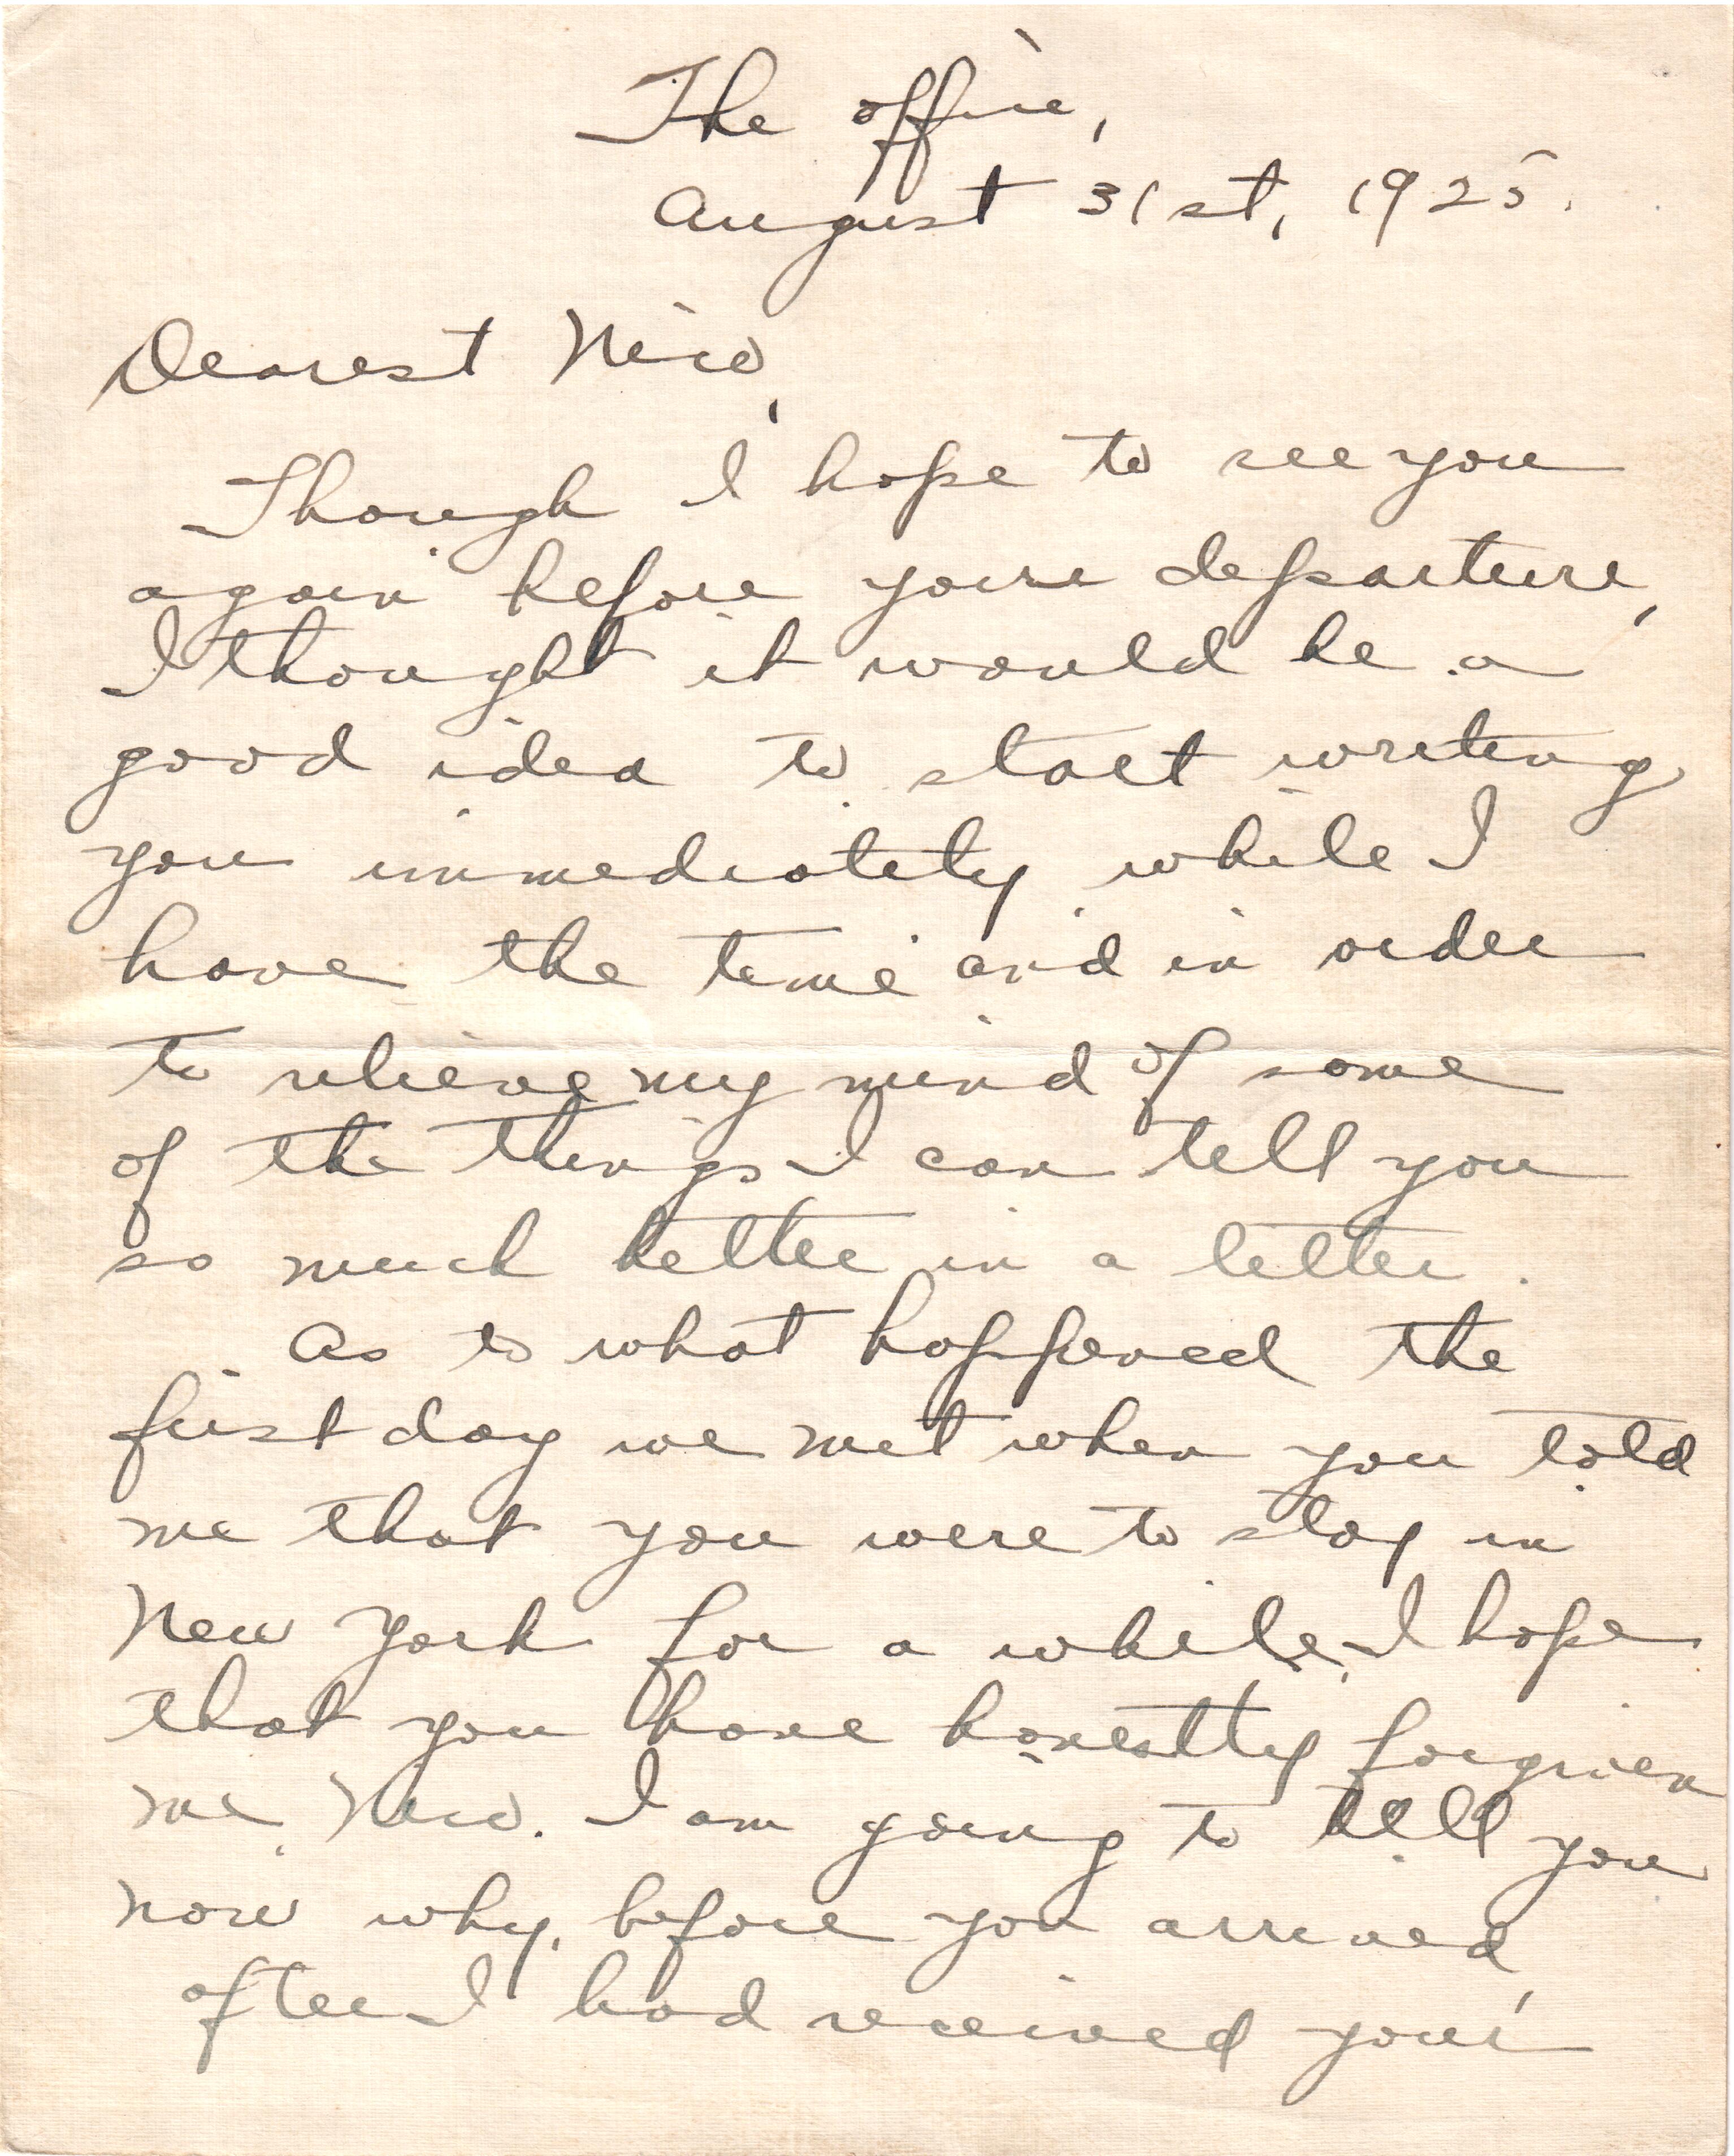 The office,
August 31st, 1925.
Dearest Nico,
Though I hope to see you
again before your departure,
I thought it would be a
good idea to start writing
you immediately while I
have the time and in order
to relieve my mind of some
of the things I can tell you
so much better in a letter.
As to what happened the
first day we met when you told
me that you were to stay in
New York for a while, I hope
that you have honestly forgiven
me, Nico. I am going to tell you
now why, before you arrived,
after I had received your